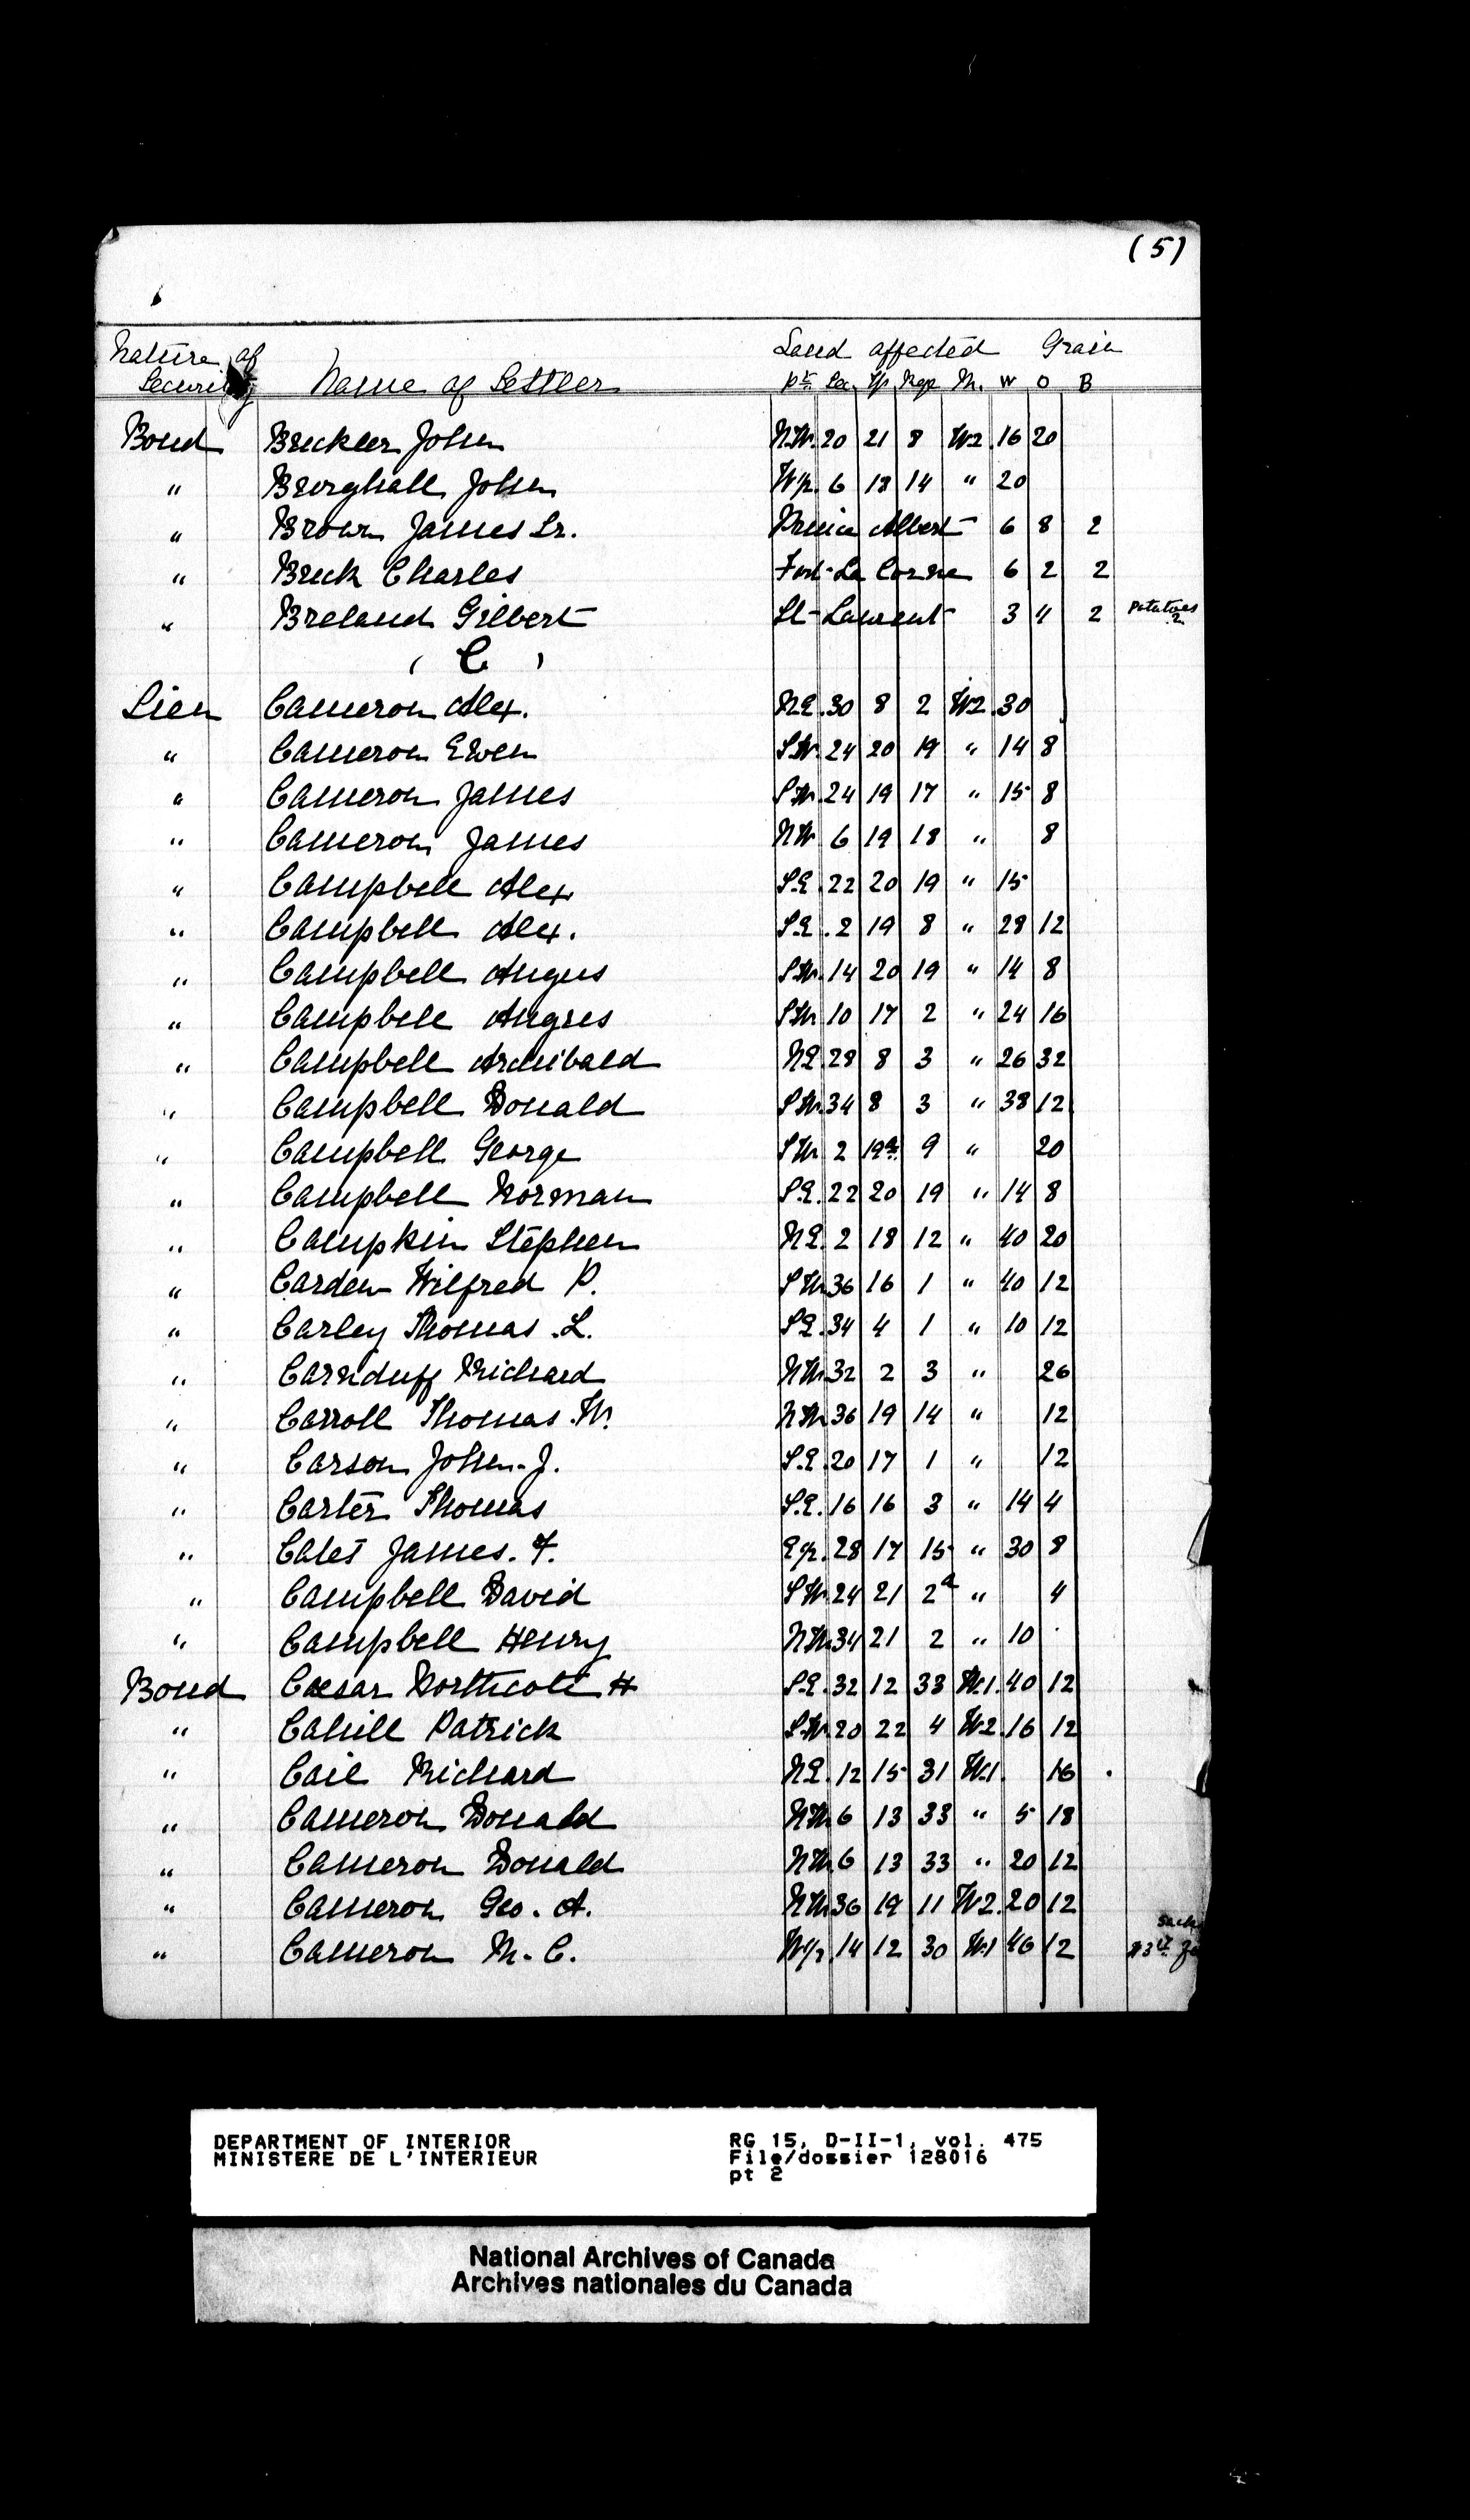 (5)
Nature of Land affected Grain
Security Name of Settler Pt. Sec. Tp Rge M. W O B
Bond Buckler John N.W. 20 21 8 W2. 16 20
" Burghall John W½ 6 18 14 " 20
" Brown James Sr. Prince Albert 6 8 2
" Buck Charles Fort La Corne 6 2 2
" Breland Gilbert St Laurent 3 4 2 Potatoes 2
( C )
Lien Cameron Alex. N.E. 30 8 2 W2. 30
" Cameron Ewen S.W. 24 20 19 " 14 8
" Cameron James S.W. 24 19 17 " 15 8
" Cameron James N.W 6 19 18 " 8
" Campbell Alex S.E. 22 20 19 " 15
" Campbell Alex. S.E. 2 19 8 " 28 12
" Campbell Angus S.W. 14 20 19 " 14 8
" Campbell Angus S.W. 10 17 2 " 24 16
" Campbell Archibald N.E. 28 8 3 " 26 32
" Campbell Donald S.W. 34 8 3 " 38 12
" Campbell George S.W. 2 19a 9 " 20
" Campbell Norman S.E. 22 20 19 " 14 8
" Campkin Stephen N.E. 2 18 12 " 40 20
" Carden Wilfred P. S.W. 36 16 1 " 40 12
" Carley Thomas L. S.E. 34 4 1 " 10 12
" Carnduff Richard N.W. 32 2 3 " 26
" Carroll Thomas W. N.W. 36 19 14 " 12
" Carson John J. S.E. 20 17 1 " 12
" Carter Thomas S.E. 16 16 3 " 14 4
" Cates James. F. E½. 28 17 15 " 30 8
" Campbell David S.W. 24 21 2a " 4
" Campbell Henry N.W. 34 21 2 " 10
Bond Caesar Northcote H S.E. 32 12 33 W.1. 40 12
" Cahill Patrick S.W. 20 22 4 W2. 16 12
" Cail Richard N.E. 12 15 31 W.1. 16
" Cameron Donald N.W. 6 13 33 " 5 18
" Cameron Donald N.W. 6 13 33 " 20 12
" Cameron Geo. A. N.W. 36 19 11 W2. 20 12
" Cameron M. C. W½ 14 12 30 W.1 46 12
DEPARTMENT OF INTERIOR
MINISTERE DE L'INTERIEUR
RG 15, D-II-1, vol. 475
File/dossier 128016
pt 2
National Archives of Canada
Archives nationales du Canada